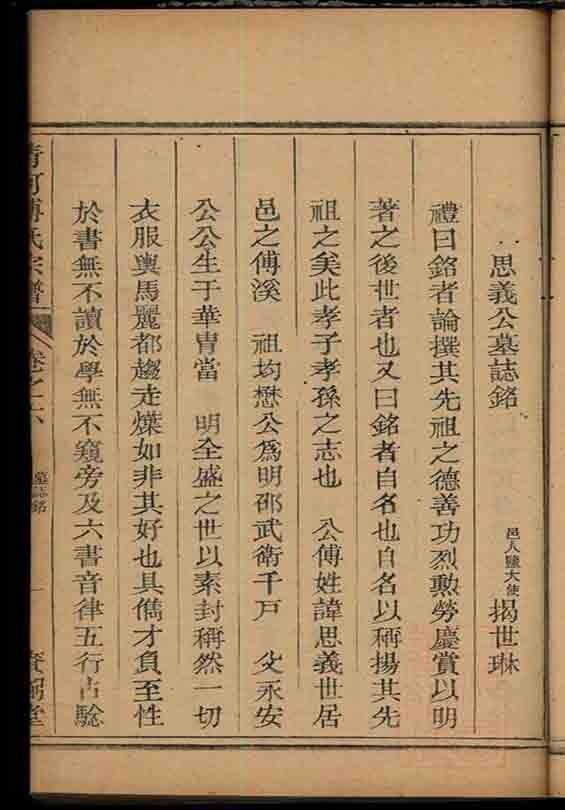 思義公墓誌銘
邑人鹽大使 揭世琳
禮曰銘者論撰其先祖之德善功烈勲勞慶賞以明
著之後世者也又曰銘者自名也自名以稱揚其先
祖之矣此孝子孝孫之志也 公傅姓諱思義世居
邑之傅溪 祖均懋公爲明邵武衛千戸 父永安
公公生于華冑當 明全盛之世以素封稱然一切
衣服輿馬麗都趨走燁如非其好也具儁才負至性
於書無不讀於學無不窺旁及六書音律五行占驗
清河傅氏宗譜
卷之六
墓誌銘
一
賚弼堂